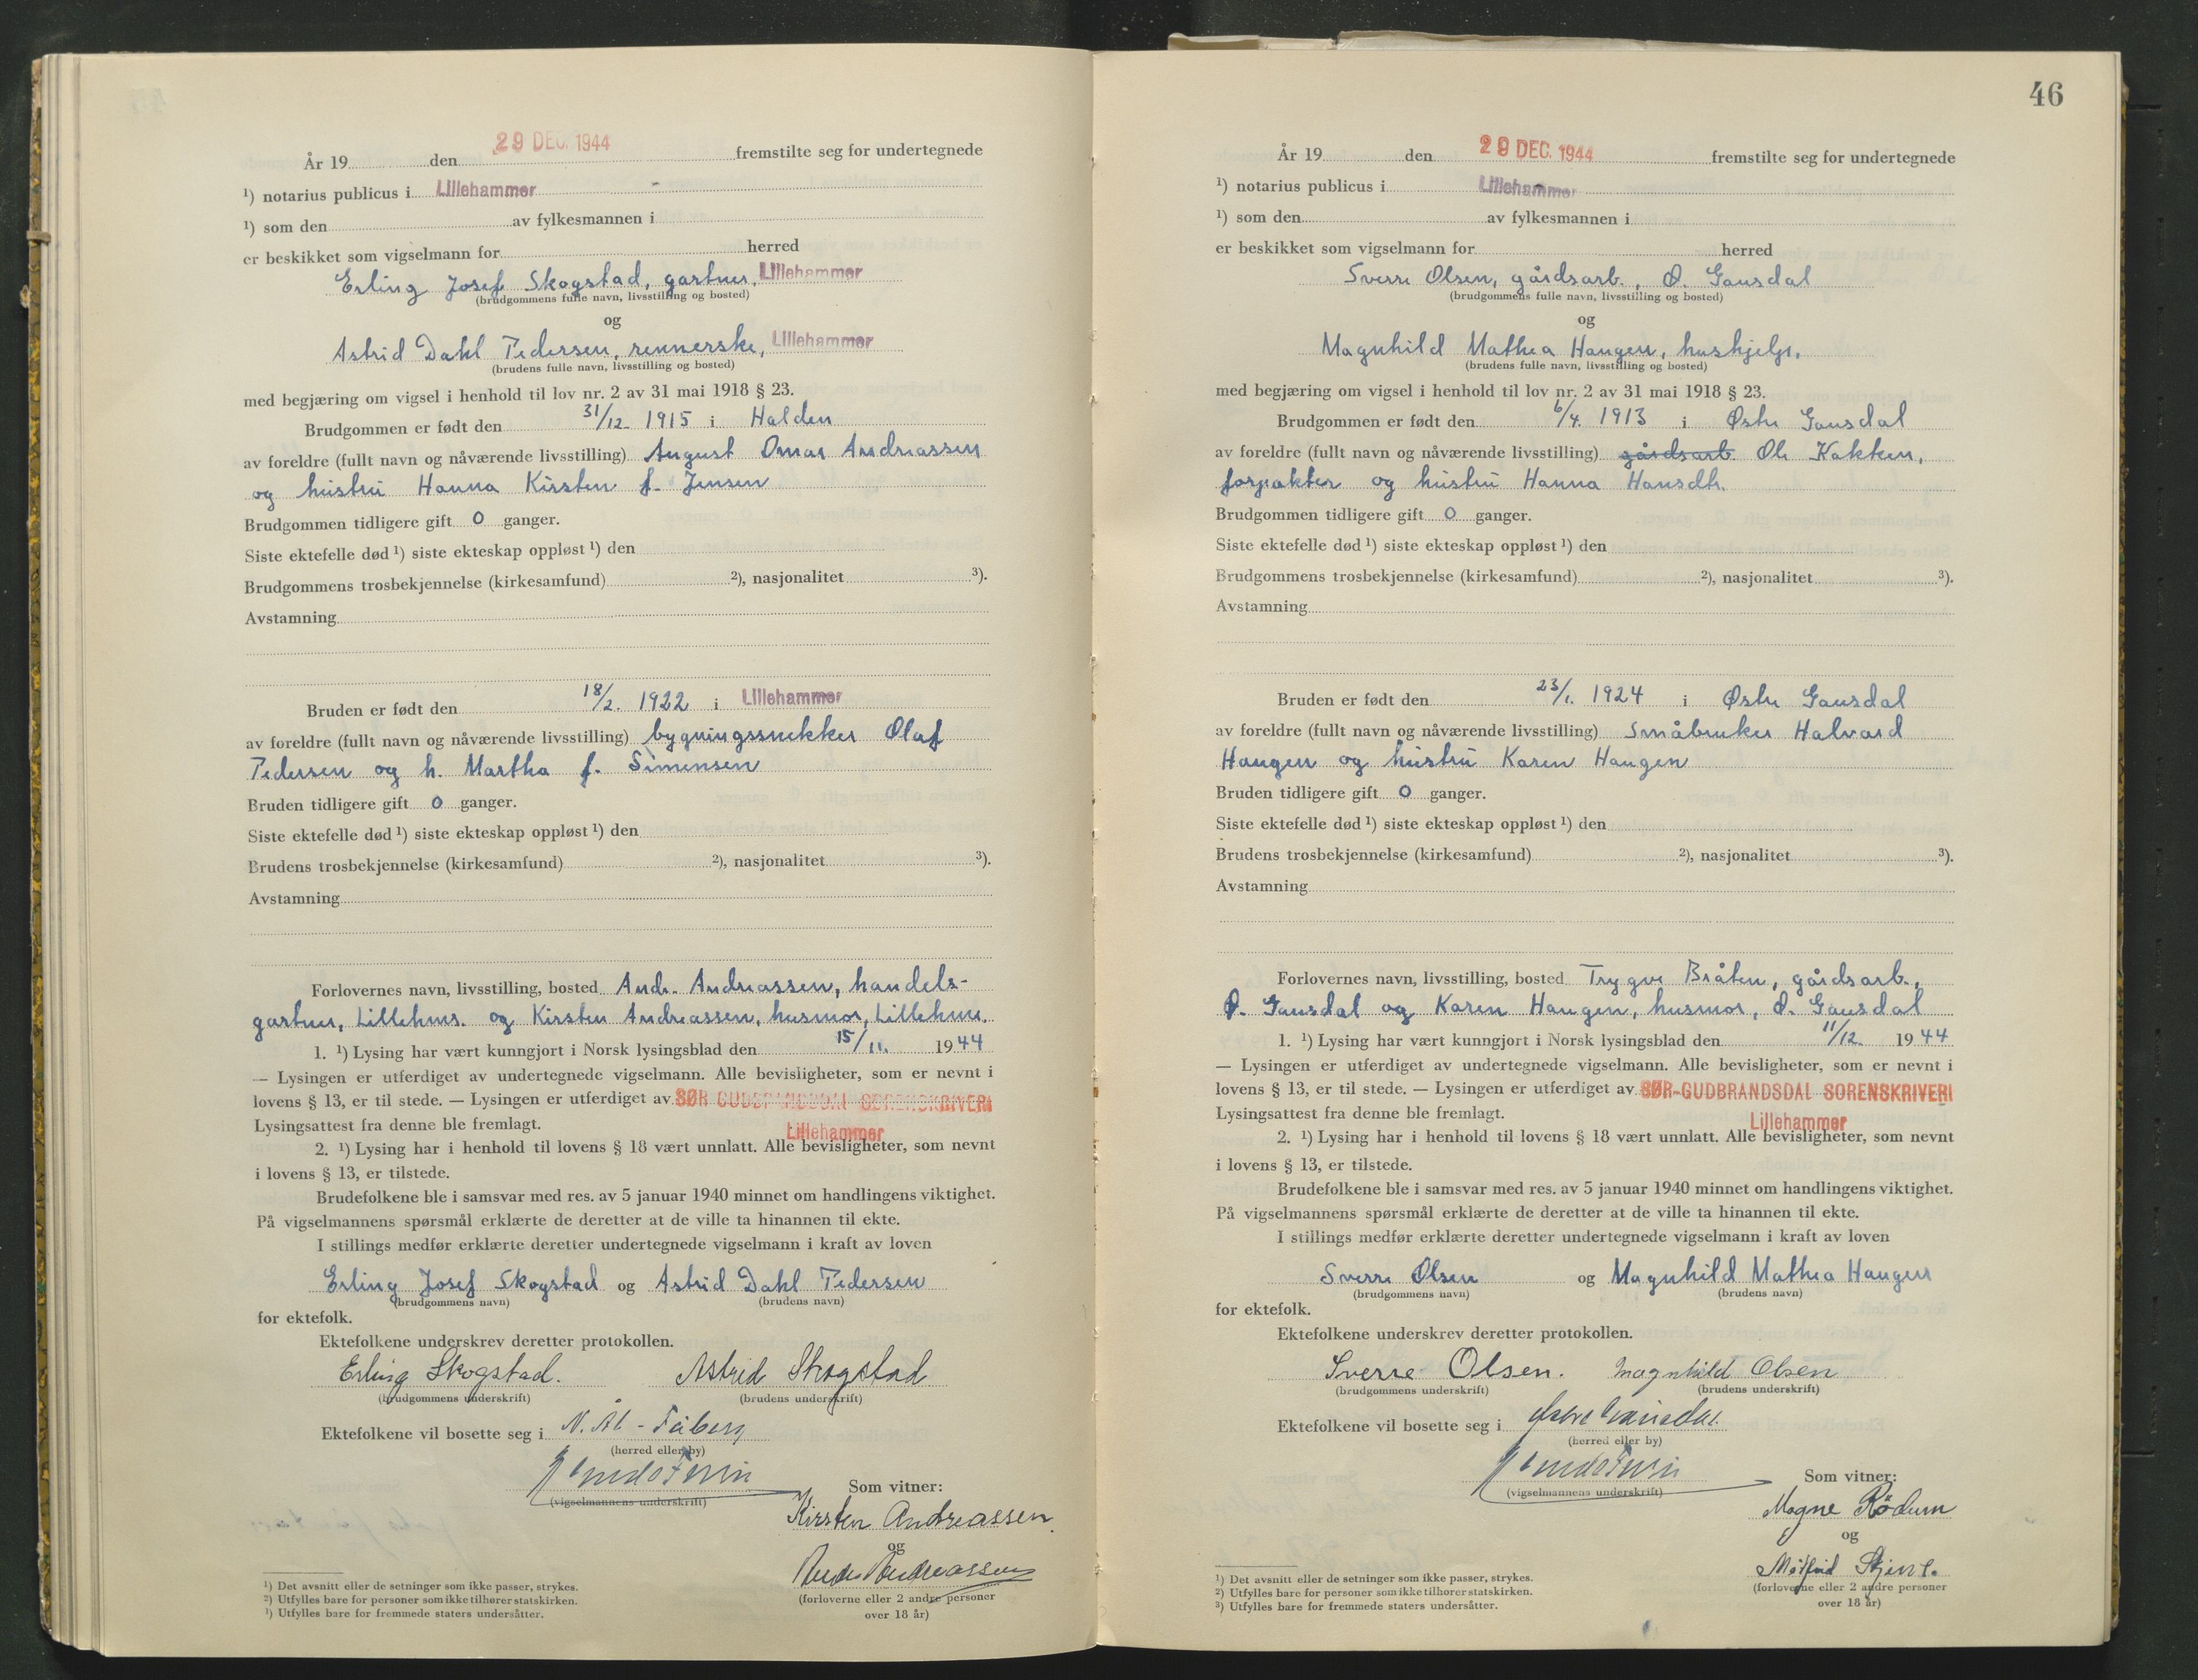 År 19 den 29 DEC. 1944 fremstilte seg for undertegnede
¹) notarius publicus i Lillehammer
¹) som den av fylkesmannen i
er beskikket som vigselmann for herred
Erling Josef Skogstad, gartner, Lillehammer
(brudgommens fulle navn, livsstilling og bosted)
og
Astrid Dahl Pedersen, rennerske, Lillehammer
(brudens fulle navn, livsstilling og bosted)
med begjæring om vigsel i henhold til lov nr. 2 av 31 mai 1918 § 23.
Brudgommen er født den 31/12. 1915 i Halden
av foreldre (fullt navn og nåværende livsstilling) August Omar Andreassen
og hustru Hanna Kirsten f. Jensen
Brudgommen tidligere gift 0 ganger.
Siste ektefelle død ¹) siste ekteskap oppløst ¹) den
Brudgommens trosbekjennelse (kirkesamfund) ²), nasjonalitet ³).
Avstamning
Bruden er født den 18/2. 1922 i Lillehammer
av foreldre (fullt navn og nåværende livsstilling) bygningssnekker Olaf
Pedersen og h. Martha f. Simensen
Bruden tidligere gift 0 ganger.
Siste ektefelle død ¹) siste ekteskap oppløst ¹) den
Brudens trosbekjennelse (kirkesamfund) ²), nasjonalitet ³).
Avstamning
Forlovernes navn, livsstilling, bosted Andr. Andreassen, handels-
gartner, Lillehmr. og Kirsten Andreassen, husmor, Lillehmr.
1. ¹) Lysing har vært kunngjort i Norsk lysingsblad den 15/11. 1944
— Lysingen er utferdiget av undertegnede vigselmann. Alle bevisligheter, som er nevnt i
lovens § 13, er til stede. — Lysingen er utferdiget av SØR-GUDBRANDSDAL SORENSKRIVERI
Lysingsattest fra denne ble fremlagt. Lillehammer
2. ¹) Lysing har i henhold til lovens § 18 vært unnlatt. Alle bevisligheter, som nevnt
i lovens § 13, er tilstede.
Brudefolkene ble i samsvar med res. av 5 januar 1940 minnet om handlingens viktighet.
På vigselmannens spørsmål erklærte de deretter at de ville ta hinannen til ekte.
I stillings medfør erklærte deretter undertegnede vigselmann i kraft av loven
Erling Josef Skogstad og Astrid Dahl Pedersen
(brudgommens navn) (brudens navn)
for ektefolk.
Ektefolkene underskrev deretter protokollen.
Erling Skogstad. Astrid Skogstad
(brudgommens underskrift) (brudens underskrift)
Ektefolkene vil bosette seg i N. Ål - Fåberg
(herred eller by)
(vigselmannens underskrift) Som vitner:
Kirsten Andreassen
og
Andr. Andreassen
(forloverne eller 2 andre personer
over 18 år)
¹) Det avsnitt eller de setninger som ikke passer, strykes.
²) Utfylles bare for personer som ikke tilhører statskirken.
³) Utfylles bare for fremmede staters undersåtter.
46
År 19 den 29 DEC. 1944 fremstilte seg for undertegnede
¹) notarius publicus i Lillehammer
¹) som den av fylkesmannen i
er beskikket som vigselmann for herred
Sverre Olsen, gårdsarb., Ø. Gausdal
(brudgommens fulle navn, livsstilling og bosted)
og
Magnhild Mathea Haugen, hushjelp.
(brudens fulle navn, livsstilling og bosted)
med begjæring om vigsel i henhold til lov nr. 2 av 31 mai 1918 § 23.
Brudgommen er født den 6/4. 1913 i Østre Gausdal
av foreldre (fullt navn og nåværende livsstilling) gårdsarb. Ole Kakken,
forpakter og hustru Hanna Hansdtr.
Brudgommen tidligere gift 0 ganger.
Siste ektefelle død ¹) siste ekteskap oppløst ¹) den
Brudgommens trosbekjennelse (kirkesamfund) ²), nasjonalitet ³).
Avstamning
Bruden er født den 23/1. 1924 i Østre Gausdal
av foreldre (fullt navn og nåværende livsstilling) Småbruker Halvard
Haugen og hustru Karen Haugen
Bruden tidligere gift 0 ganger.
Siste ektefelle død ¹) siste ekteskap oppløst ¹) den
Brudens trosbekjennelse (kirkesamfund) ²), nasjonalitet ³).
Avstamning
Forlovernes navn, livsstilling, bosted Trygve Bråten, gårdsarb.,
Ø. Gausdal og Karen Haugen, husmor, Ø. Gausdal
1. ¹) Lysing har vært kunngjort i Norsk lysingsblad den 11/12. 1944
— Lysingen er utferdiget av undertegnede vigselmann. Alle bevisligheter, som er nevnt i
lovens § 13, er til stede. — Lysingen er utferdiget av SØR-GUDBRANDSDAL SORENSKRIVERI
Lysingsattest fra denne ble fremlagt. Lillehammer
2. ¹) Lysing har i henhold til lovens § 18 vært unnlatt. Alle bevisligheter, som nevnt
i lovens § 13, er tilstede.
Brudefolkene ble i samsvar med res. av 5 januar 1940 minnet om handlingens viktighet.
På vigselmannens spørsmål erklærte de deretter at de ville ta hinannen til ekte.
I stillings medfør erklærte deretter undertegnede vigselmann i kraft av loven
Sverre Olsen og Magnhild Mathea Haugen
(brudgommens navn) (brudens navn)
for ektefolk.
Ektefolkene underskrev deretter protokollen.
Sverre Olsen. Magnhild Olsen
(brudgommens underskrift) (brudens underskrift)
Ektefolkene vil bosette seg i Østre Gausdal.
(herred eller by)
(vigselmannens underskrift) Som vitner:
Magne Rödum
og
(forloverne eller 2 andre personer
over 18 år)
¹) Det avsnitt eller de setninger som ikke passer, strykes.
²) Utfylles bare for personer som ikke tilhører statskirken.
³) Utfylles bare for fremmede staters undersåtter.